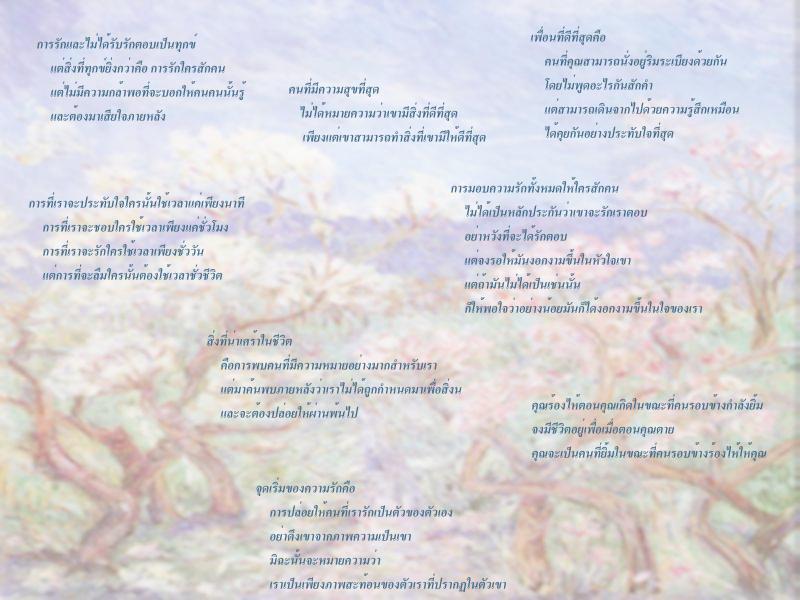 การรักและไม่ได้รับรักตอบเป็นทุกข์
แต่สิ่งที่ทุกข์ยิ่งกว่าคือ การรักใครสักคน
แต่ไม่มีความกล้าพอที่จะบอกให้คนคนนั้นรู้
และต้องมาเสียใจภายหลัง
คนที่มีความสุขที่สุด
ไม่ได้หมายความว่าเขามีสิ่งที่ดีที่สุด
เพียงแต่เขาสามารถทำสิ่งที่เขามีให้ดีที่สุด
เพื่อนที่ดีที่สุดคือ
คนที่คุณสามารถนั่งอยู่ริมระเบียงด้วยกัน
โดยไม่พูดอะไรกันสักคำ
แต่สามารถเดินจากไปด้วยความรู้สึกเหมือน
ได้คุยกันอย่างประทับใจที่สุด
การที่เราจะประทับใจใครนั้นใช้เวลาแค่เพียงนาที
การที่เราจะชอบใครใช้เวลาเพียงแค่ชั่วโมง
การที่เราจะรักใครใช้เวลาเพียงชั่ววัน
แต่การที่จะลืมใครนั้นต้องใช้เวลาชั่วชีวิต
การมอบความรักทั้งหมดให้ใครสักคน
ไม่ได้เป็นหลักประกันว่าเขาจะรักเราตอบ
อย่าหวังที่จะได้รักตอบ
แต่จงรอให้มันงอกงามขึ้นในหัวใจเขา
แต่ถ้ามันไม่ได้เป็นเช่นนั้น
ก็ให้พอใจว่าอย่างน้อยมันก็ได้งอกงามขึ้นในใจของเรา
สิ่งที่น่าเศร้าในชีวิต
คือการพบคนที่มีความหมายอย่างมากสำหรับเรา
แต่มาค้นพบภายหลังว่าเราไม่ได้ถูกกำหนดมาเพื่อสิ่งน
และจะต้องปล่อยให้ผ่านพ้นไป
คุณร้องไห้ตอนคุณเกิดในขณะที่คนรอบข้างกำลังยิ้ม
จงมีชีวิตอยู่เพื่อเมื่อตอนคุณตาย
คุณจะเป็นคนที่ยิ้มในขณะที่คนรอบข้างร้องไห้ให้คุณ
จุดเริ่มของความรักคือ
การปล่อยให้คนที่เรารักเป็นตัวของตัวเอง
อย่าดึงเขาจากภาพความเป็นเขา
มิฉะนั้นจะหมายความว่า
เราเป็นเพียงภาพสะท้อนของตัวเราที่ปรากฏในตัวเขา